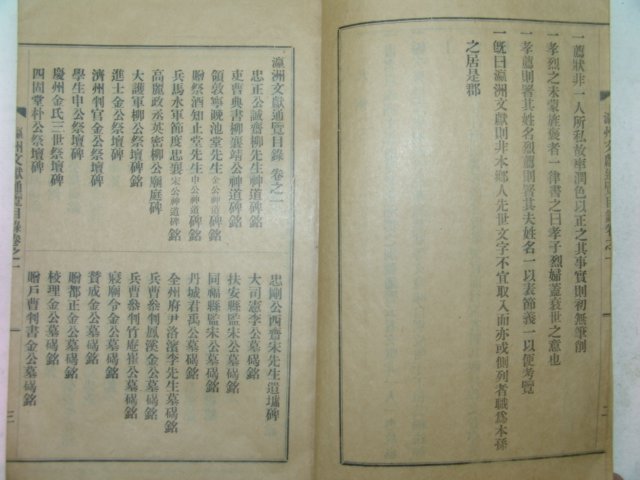 一薦狀非一人所私故率潤色以正之其事實則初無筆創
一孝烈之未蒙旌褒者一律書之曰孝子烈婦蓋衰世之意也
一孝薦則署其姓名烈薦則署其夫姓名一以表節義一以便考覽
一旣曰瀛洲文獻則非本鄉人先世文字不宜取入而亦或側列者職爲本孫
之居是郡
二
瀛洲文獻通覽目錄 卷之一
忠正公誠齋柳先生神道碑銘
吏曹典書柳襄靖公神道碑銘
領敦寧晩池堂先生金公神道碑銘
贈祭酒知止堂先生申公神道碑銘
兵馬水軍節度忠襄宋公神道碑銘
高麗政丞英密柳公廟庭碑
大護軍柳公祭壇碑銘
進士金公祭壇碑銘
濟州判官金公祭壇碑
學生申公祭壇碑
慶州金氏三世祭壇碑
四固堂朴公祭壇碑
忠剛公西齋朱先生遺墟碑
大司憲李公墓碣銘
扶安縣監朱公墓碣銘
同福縣監朱公墓碣銘
丹城君禹公墓碣銘
全州府尹洛濱李先生墓碣銘
兵曹叅判鳳溪金公墓碣銘
兵曹叅判竹庵崔公墓碣銘
寢廟令金公墓碣銘
贊成金公墓碣銘
贈都正金公墓碣銘
校理金公墓碣銘
贈戶曹判書金公墓碣銘
瀛洲文獻通覽目錄卷之一
三